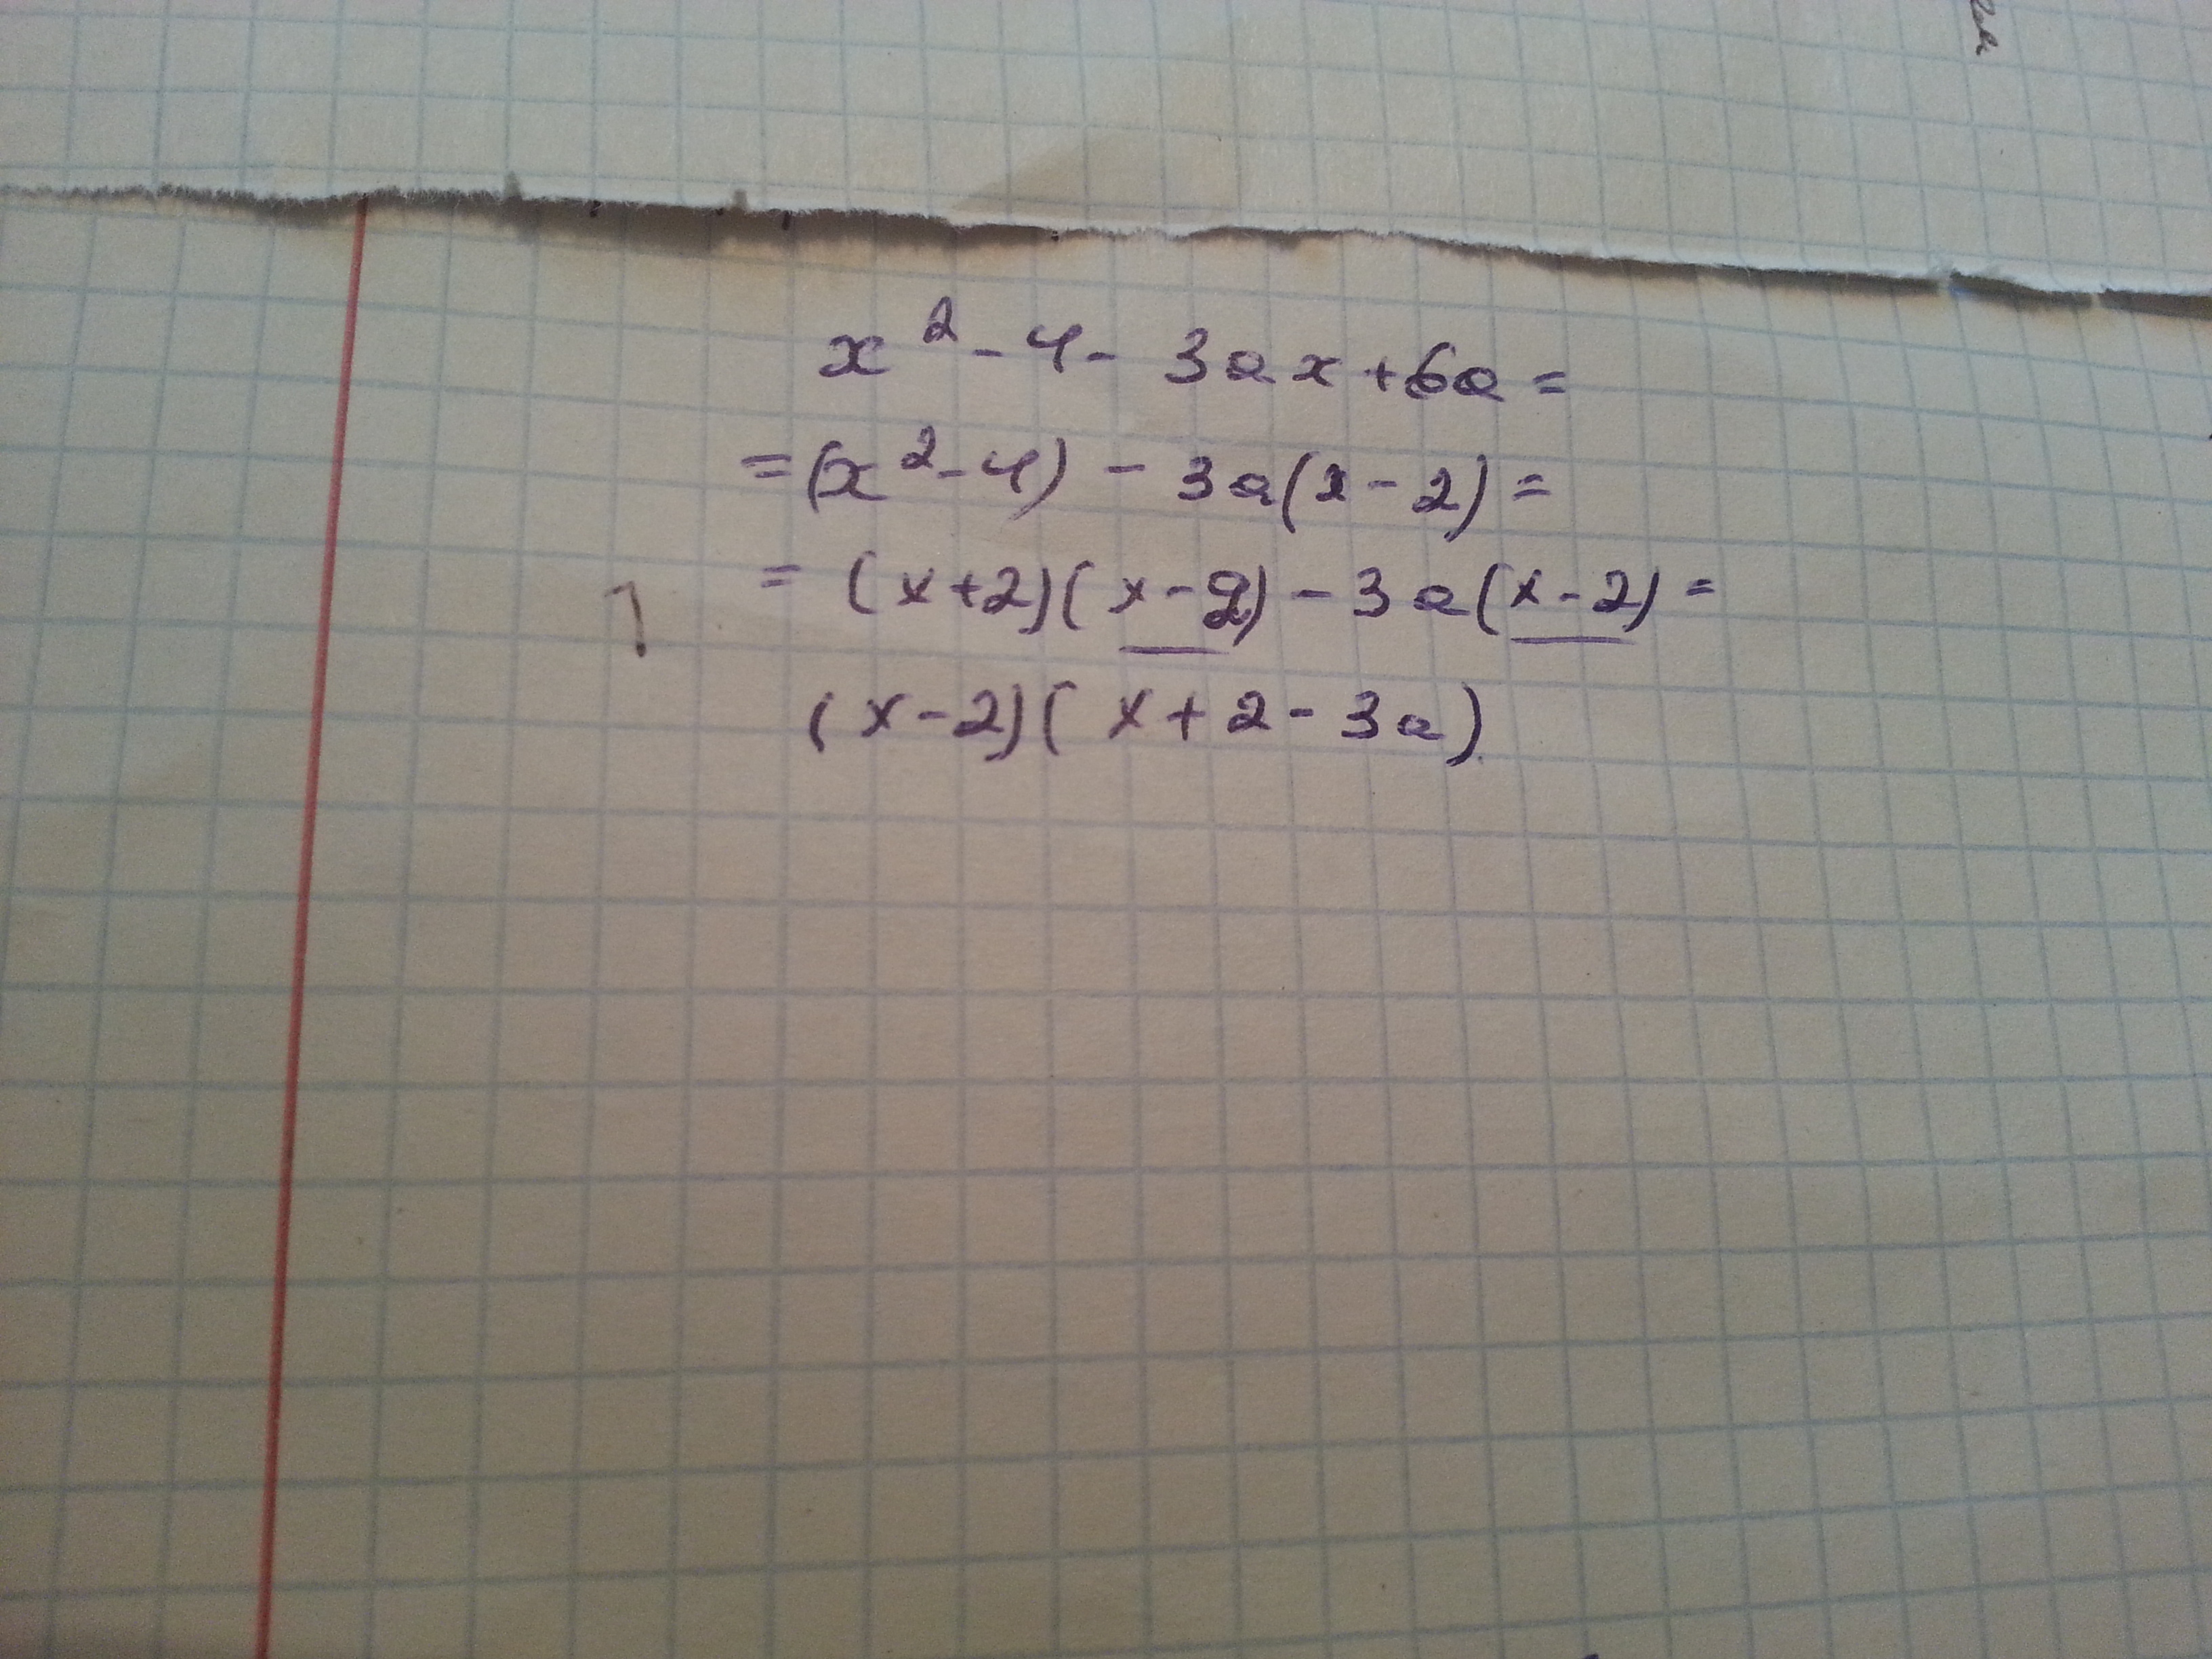 x² - 4 - 3ax + 6a =
= (x² - 4) - 3a(x - 2) =
= (x + 2)(x - 2) - 3a(x - 2) =
(x - 2)(x + 2 - 3a)